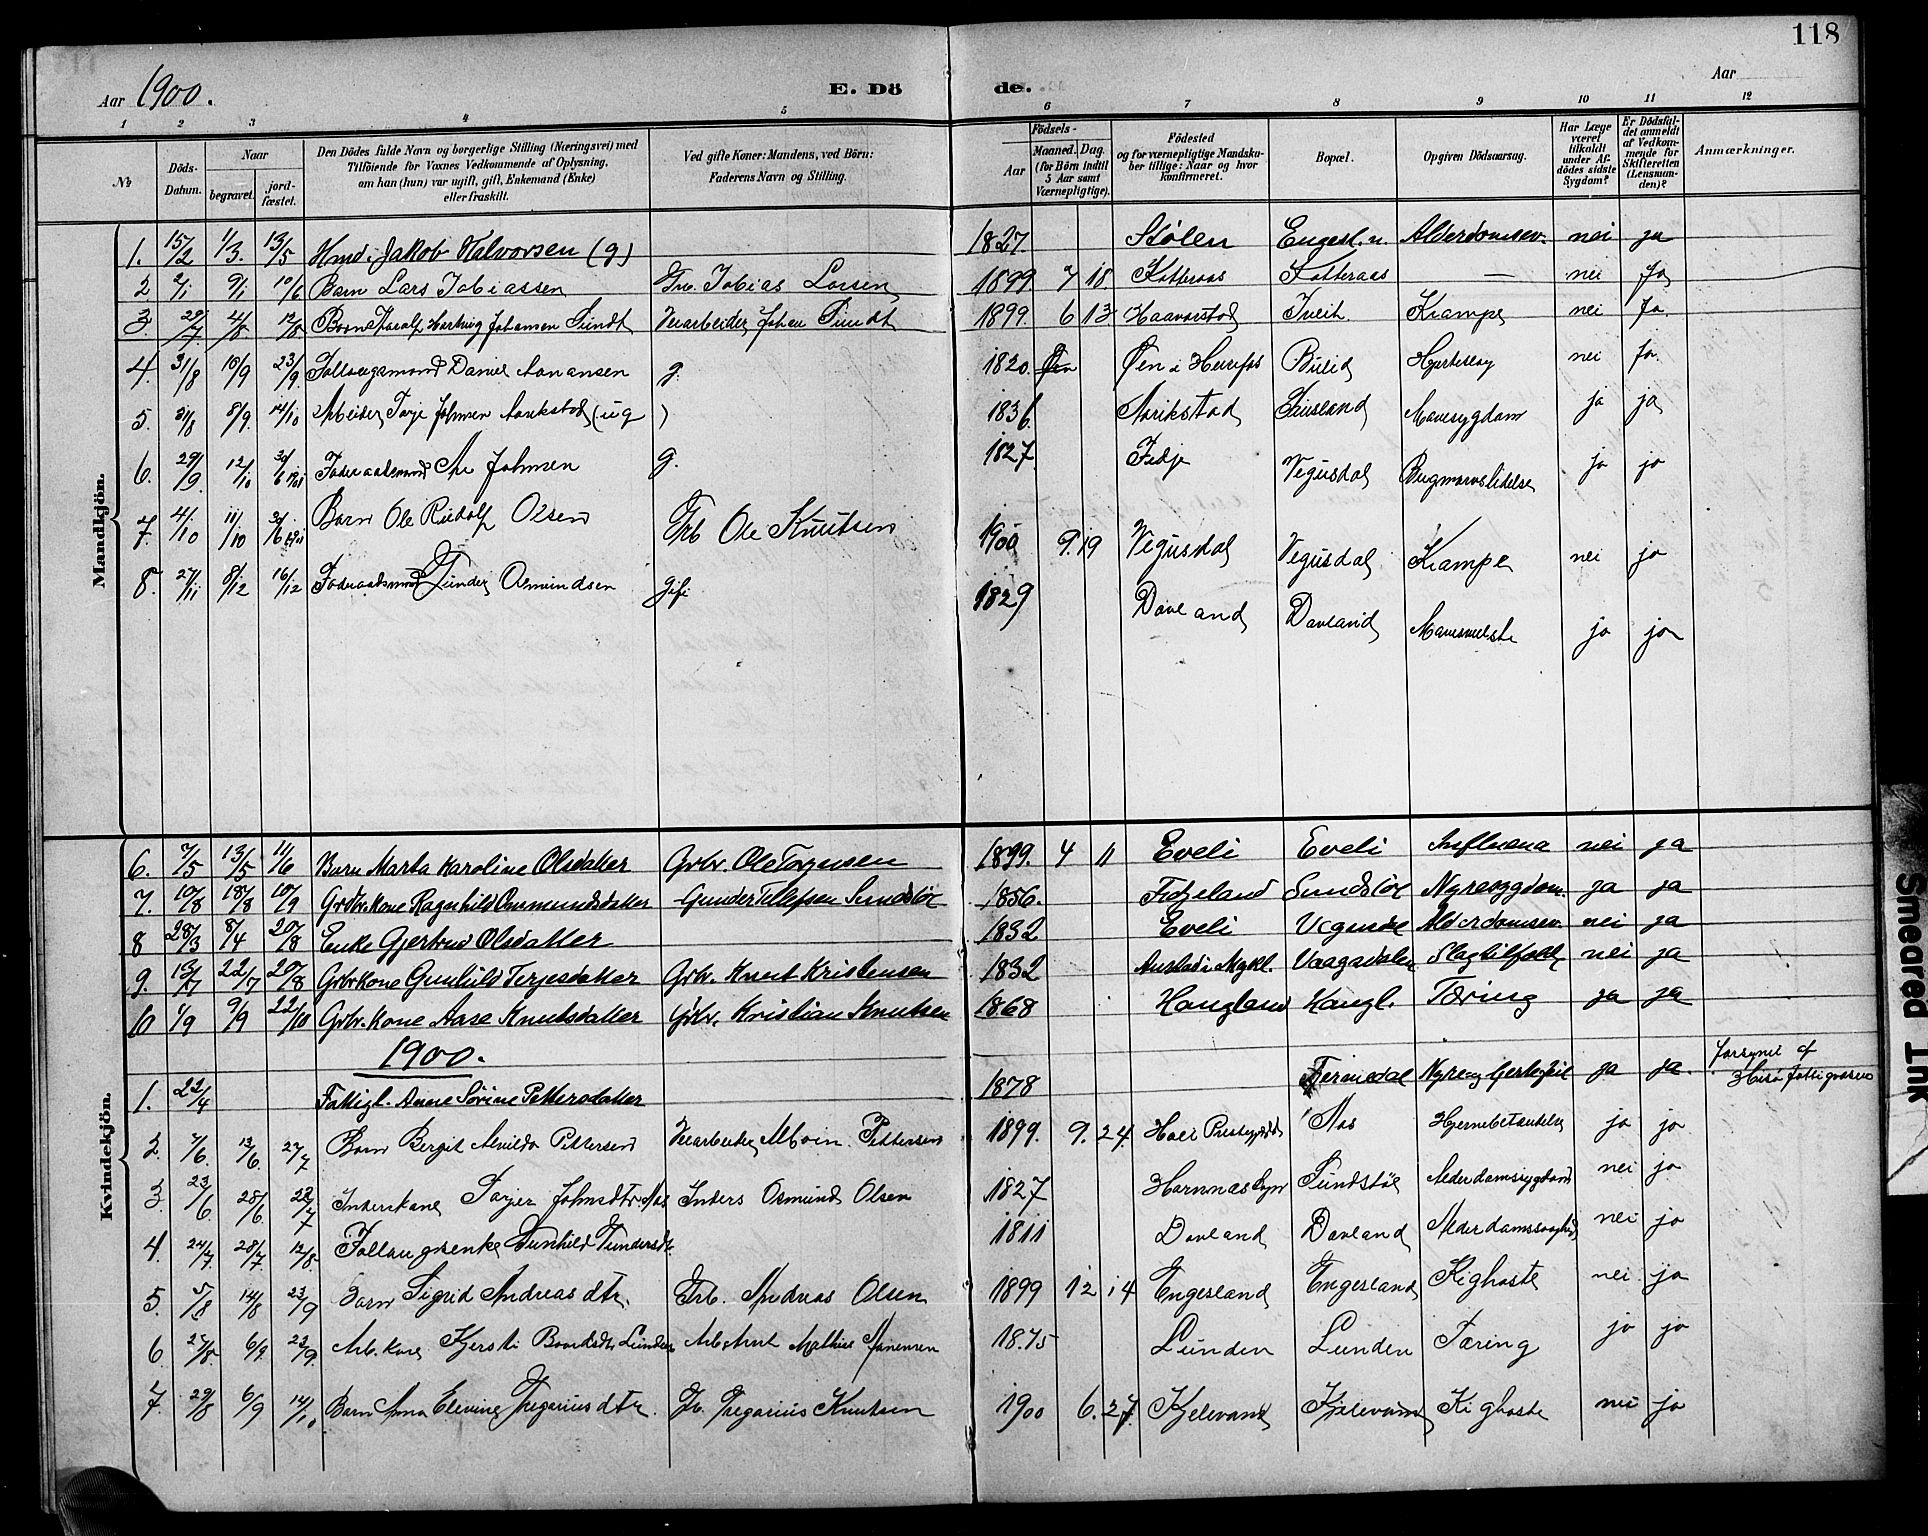 118
Aar 1900. E. Dö de. Aar
1 2 3 4 5 6 7 8 9 10 11 12
No
Döds-Datum.
Naar begravet. jordfæstet.
Den Dödes fulde Navn og borgerlige Stilling (Næringsvei) med Tilföiende for Voxnes Vedkommende af Oplysning, om han (hun) var ugift, gift, Enkemand (Enke) eller fraskilt.
Ved gifte Koner: Mandens, ved Börn: Faderens Navn og Stilling.
Födsels-
Aar Maaned. Dag. (for Börn indtil 5 Aar samt Værnepligtige).
Födested og for værnepligtige Mandskaber tillige: Naar og hvor konfirmeret.
Bopæl.
Opgiven Dödsaarsag.
Har Læge været tilkaldt under Afdödes sidste Sygdom?
Er Dödsfaldet anmeldt af Vedkommende for Skifteretten (Lensmanden)?
Anmærkninger.
Mandkjön.
1. 15/2 1/3. 13/5 Hmd. Jakob Halvorsen (g) 1827 Stölen Engesl. n. Alderdomsv. nei ja
2 2/1 9/1 10/6 Barn Lars Tobiassen Grb. Tobias Larsen 1899 7 18 Katteraas Katteraas — nei Ja
3. 29/7. 4/8 12/8 Barn Hartvig Johansen Sundt Veiarbeider Johan Sundt 1899. 6 13 Haavorstad Tveit Krampe nei Ja.
4. 31/8 10/9 23/9 Follaugsmand Daniel Aanansen g. 1820. Øen Øen i Herefos Bulid Hjerteslag nei ja.
5. 31/8 8/9. 14/10 Arbeider Tarje Johnsen Aarikstad (ug) 1836 Aarikstad Fuusland Mavesygdom ja ja
6. 29/9. 12/10 Foderaadsmand Are Johnsen g. 1827 Fidje Vegusdal Rugmarvslidelse ja ja
7. 4/10 11/10 Barn Ole Rudolf Olsen Grb Ole Knutsen 1900 9. 19 Vegusdal Vegusdal Krampe nei ja
8. 27/11 8/12 16/12 Foderaadsmand Gunder Osmundsen gift 1829 Dovland Dovland Mavesvulst ja ja
Kvindekjön.
6. 7/5 13/5 11/6 Barn Marta Karoline Olsdatter Grbr. Ole Torgersen 1899. 4 11 Eveli Eveli Influena nei ja
7. 10/8 18/8 10/9 Grdbr. Kone Ragnhild Osmundsdatter Gunder Tellefsen Sundstöl 1856. Fidjeland Sundstöl Nyresygdom. ja ja
8 28/3 8/4 20/8 Enke Gjertrud Olsdatter 1832 Eveli Vegusdal Alderdomsv. nei ja
9. 13/7 22/7 20/8 Grbr Kone Gunhild Terjesdatter Grbr. Knut Kristensen 1832 Austad i Mykl. Vaagsdalen Slagtilfælde nei ja
10 1/9 9/9 22/10 Grbr. Kone Aase Knutsdatter Grbr. Kristian Knutsen 1868 Haugland Haugl. Tæring ja ja
1900.
1. 22/4 Fattigl. Anne Sörine Pettersdatter 1878 Fermedal Nyre og hjertefeil ja ja. forsynet af Hisö fattigvæsen
2. 7/6. 13/6. 27/7 Barn Bergit Alvilda Pettersen Veiarbeider Pettersen 1899. 9. 24. Hoel Prestegjeld Aas Hjernebetændelse ja ja
3. 23/6 28/6. 22/7 Inderstkone Tarjer Johnsdtr. Aas Inderst Osmund Olsen 1827 Hornnes Sogn Sundstöl Alderdomssygdom nei ja
4. 24/7. 28/7. 12/8. Follaugsenke Gunhild Gundersdt. 1811 Dovland Dovland Alderdomssvaghed nei ja
5. 5/8 14/8 23/9 Barn Sigrid Andreasdtr. Grb. Andreas Olsen 1899 12 14 Engesland Engesland Kighoste nei. ja
6 25/8 6/9. 23/9. Arb. kone Kjersti Baardsdtr Lunden Mathias Aanensen 1875 Lunden Lunden Tæring ja ja
7. 29/8 6/9 14/10 Barn Anna Elevine Gregariusdtr. Gb. Gregarius Knutsen 1900 6. 27. Kjelevand Kjelevand Kighoste nei ja
Smeared Ink